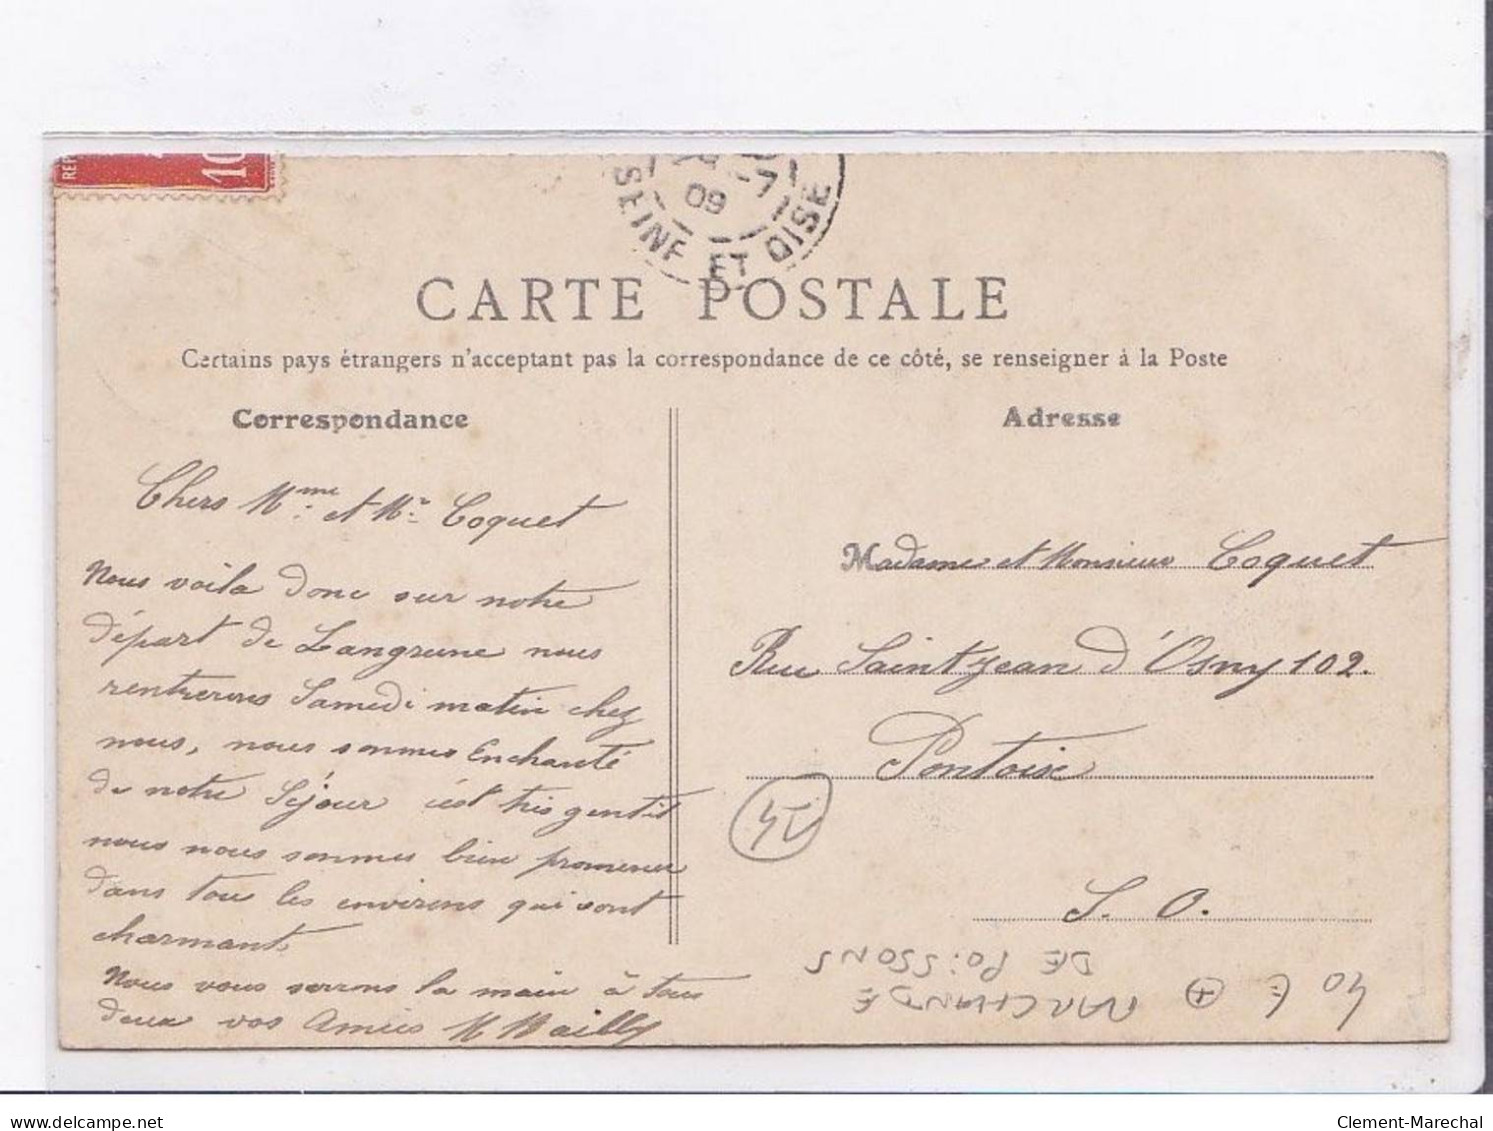 REP
10
09 -7
SEINE ET OISE
CARTE POSTALE
Certains pays étrangers n'acceptant pas la correspondance de ce côté, se renseigner à la Poste
Correspondance
Chers Mme et Mr Coquet
Nous voila donc sur notre
départ de Langrune nous
rentrerons Samedi matin chez
nous, nous sommes Enchanté
de notre Séjour c'est très gentil
nous nous sommes bien promener
dans tous les environs qui sont
charmants
Nous vous serrons la main à tous
deux vos Amies
Adresse
Madame et Monsieur Coquet
Rue Saint Jean d'Osny 102.
Pontoise
S. O.
40 E + MARCHANDE
DE POISSONS
www.delcampe.net
Clement-Marechal